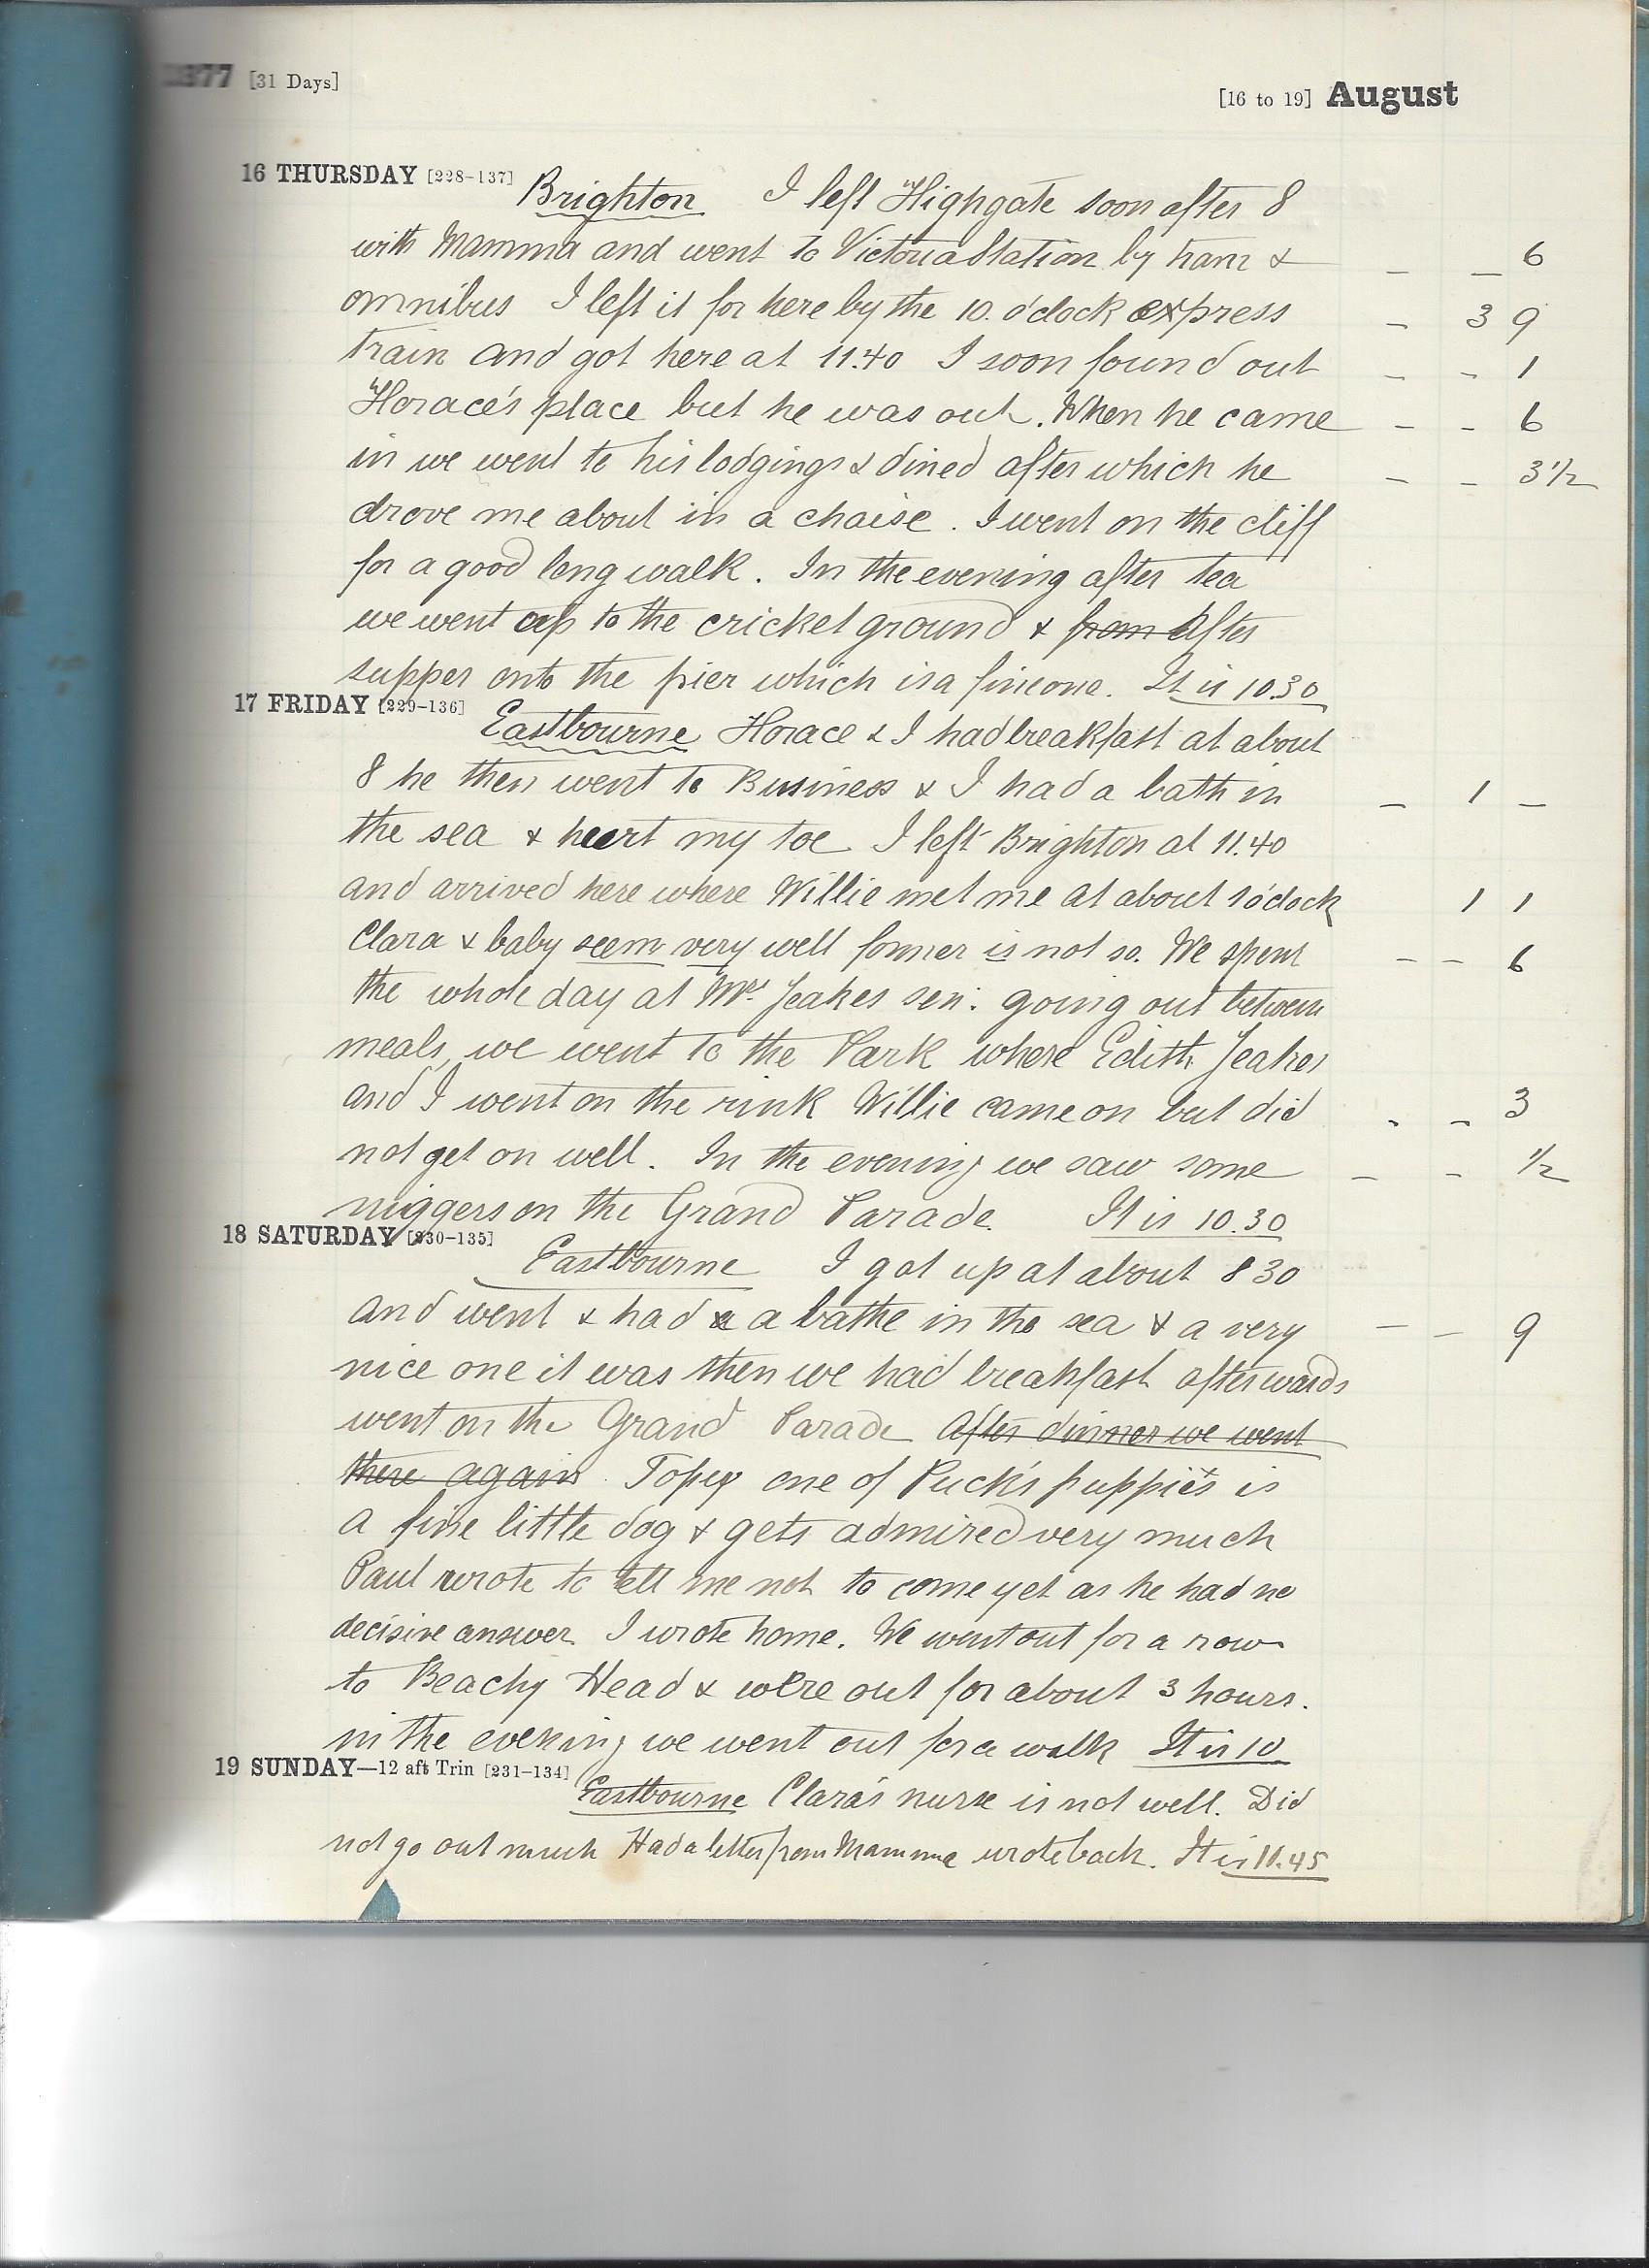 1877 [31 Days]
[16 to 19] August
16 THURSDAY [228-137]
Brighton I left Highgate soon after 8
with Mamma and went to Victoria Station by tram & - - 6
omnibus I left it for here by the 10. o'clock express - 3 9
train and got here at 11.40 I soon found out - - 1
Horace's place but he was out. When he came - - 6
in we went to his lodgings & dined after which he - - 3 1/2
drove me about in a chaise. I went on the cliff
for a good long walk. In the evening after tea
we went up to the cricket ground & from After
supper onto the pier which is a fine one. It is 10.30
17 FRIDAY [229-136]
Eastbourne Horace & I had breakfast at about
8 he then went to Business & I had a bath in - 1 -
the sea & hurt my toe I left Brighton at 11.40
and arrived here where Willie met me at about 1 o'clock 1 1
Clara & baby seem very well former is not so. We spent - - 6
the whole day at Mrs. Jeakes sen: going out between
meals, we went to the Park where Edith Jeakes
and I went on the rink Willie came on but did - - 3
not get on well. In the evening we saw some - - 1/2
niggers on the Grand Parade. It is 10.30
18 SATURDAY [230-135]
Eastbourne I got up at about 8 30
and went & had a a bathe in the sea & a very - - 9
nice one it was then we had breakfast afterwards
went on the Grand Parade After dinner we went
there again. Topsy one of Puck's puppies is
a fine little dog & gets admired very much
Paul wrote to tell me not to come yet as he had no
decisive answer. I wrote home. We went out for a row
to Beachy Head & were out for about 3 hours.
in the evening we went out for a walk It is 10
19 SUNDAY—12 aft Trin [231-134]
Eastbourne Clara's nurse is not well. Did
not go out much Had a letter from Mamma wrote back. It is 11.45